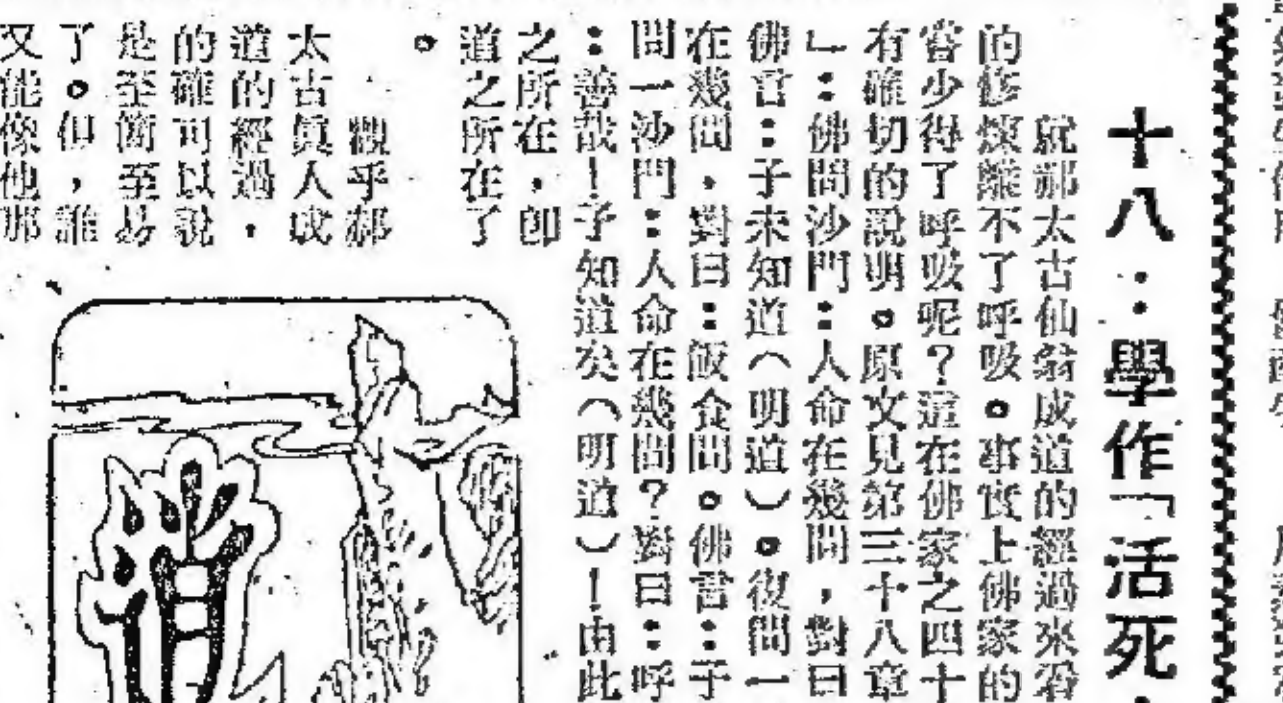 十八：學作「活死
就郝太古仙翁成道的經過來看
的修煉離不了呼吸。事實上佛家的
嘗少得了呼吸呢？這在佛家之四十
有確切的說明。原文見第三十八章
」：佛問沙門：人命在幾間，對曰
佛言：子未知道（明道）。復問一
在幾間，對曰：飯食間。佛言：子
問一沙門：人命在幾間？對曰：呼
：善哉！子知道矣（明道）！由此
之所在，即
道之所在了
。
觀乎郝
太古眞人成
道的經過，
的確可以說
是至簡至易
了。但，誰
又能像他那